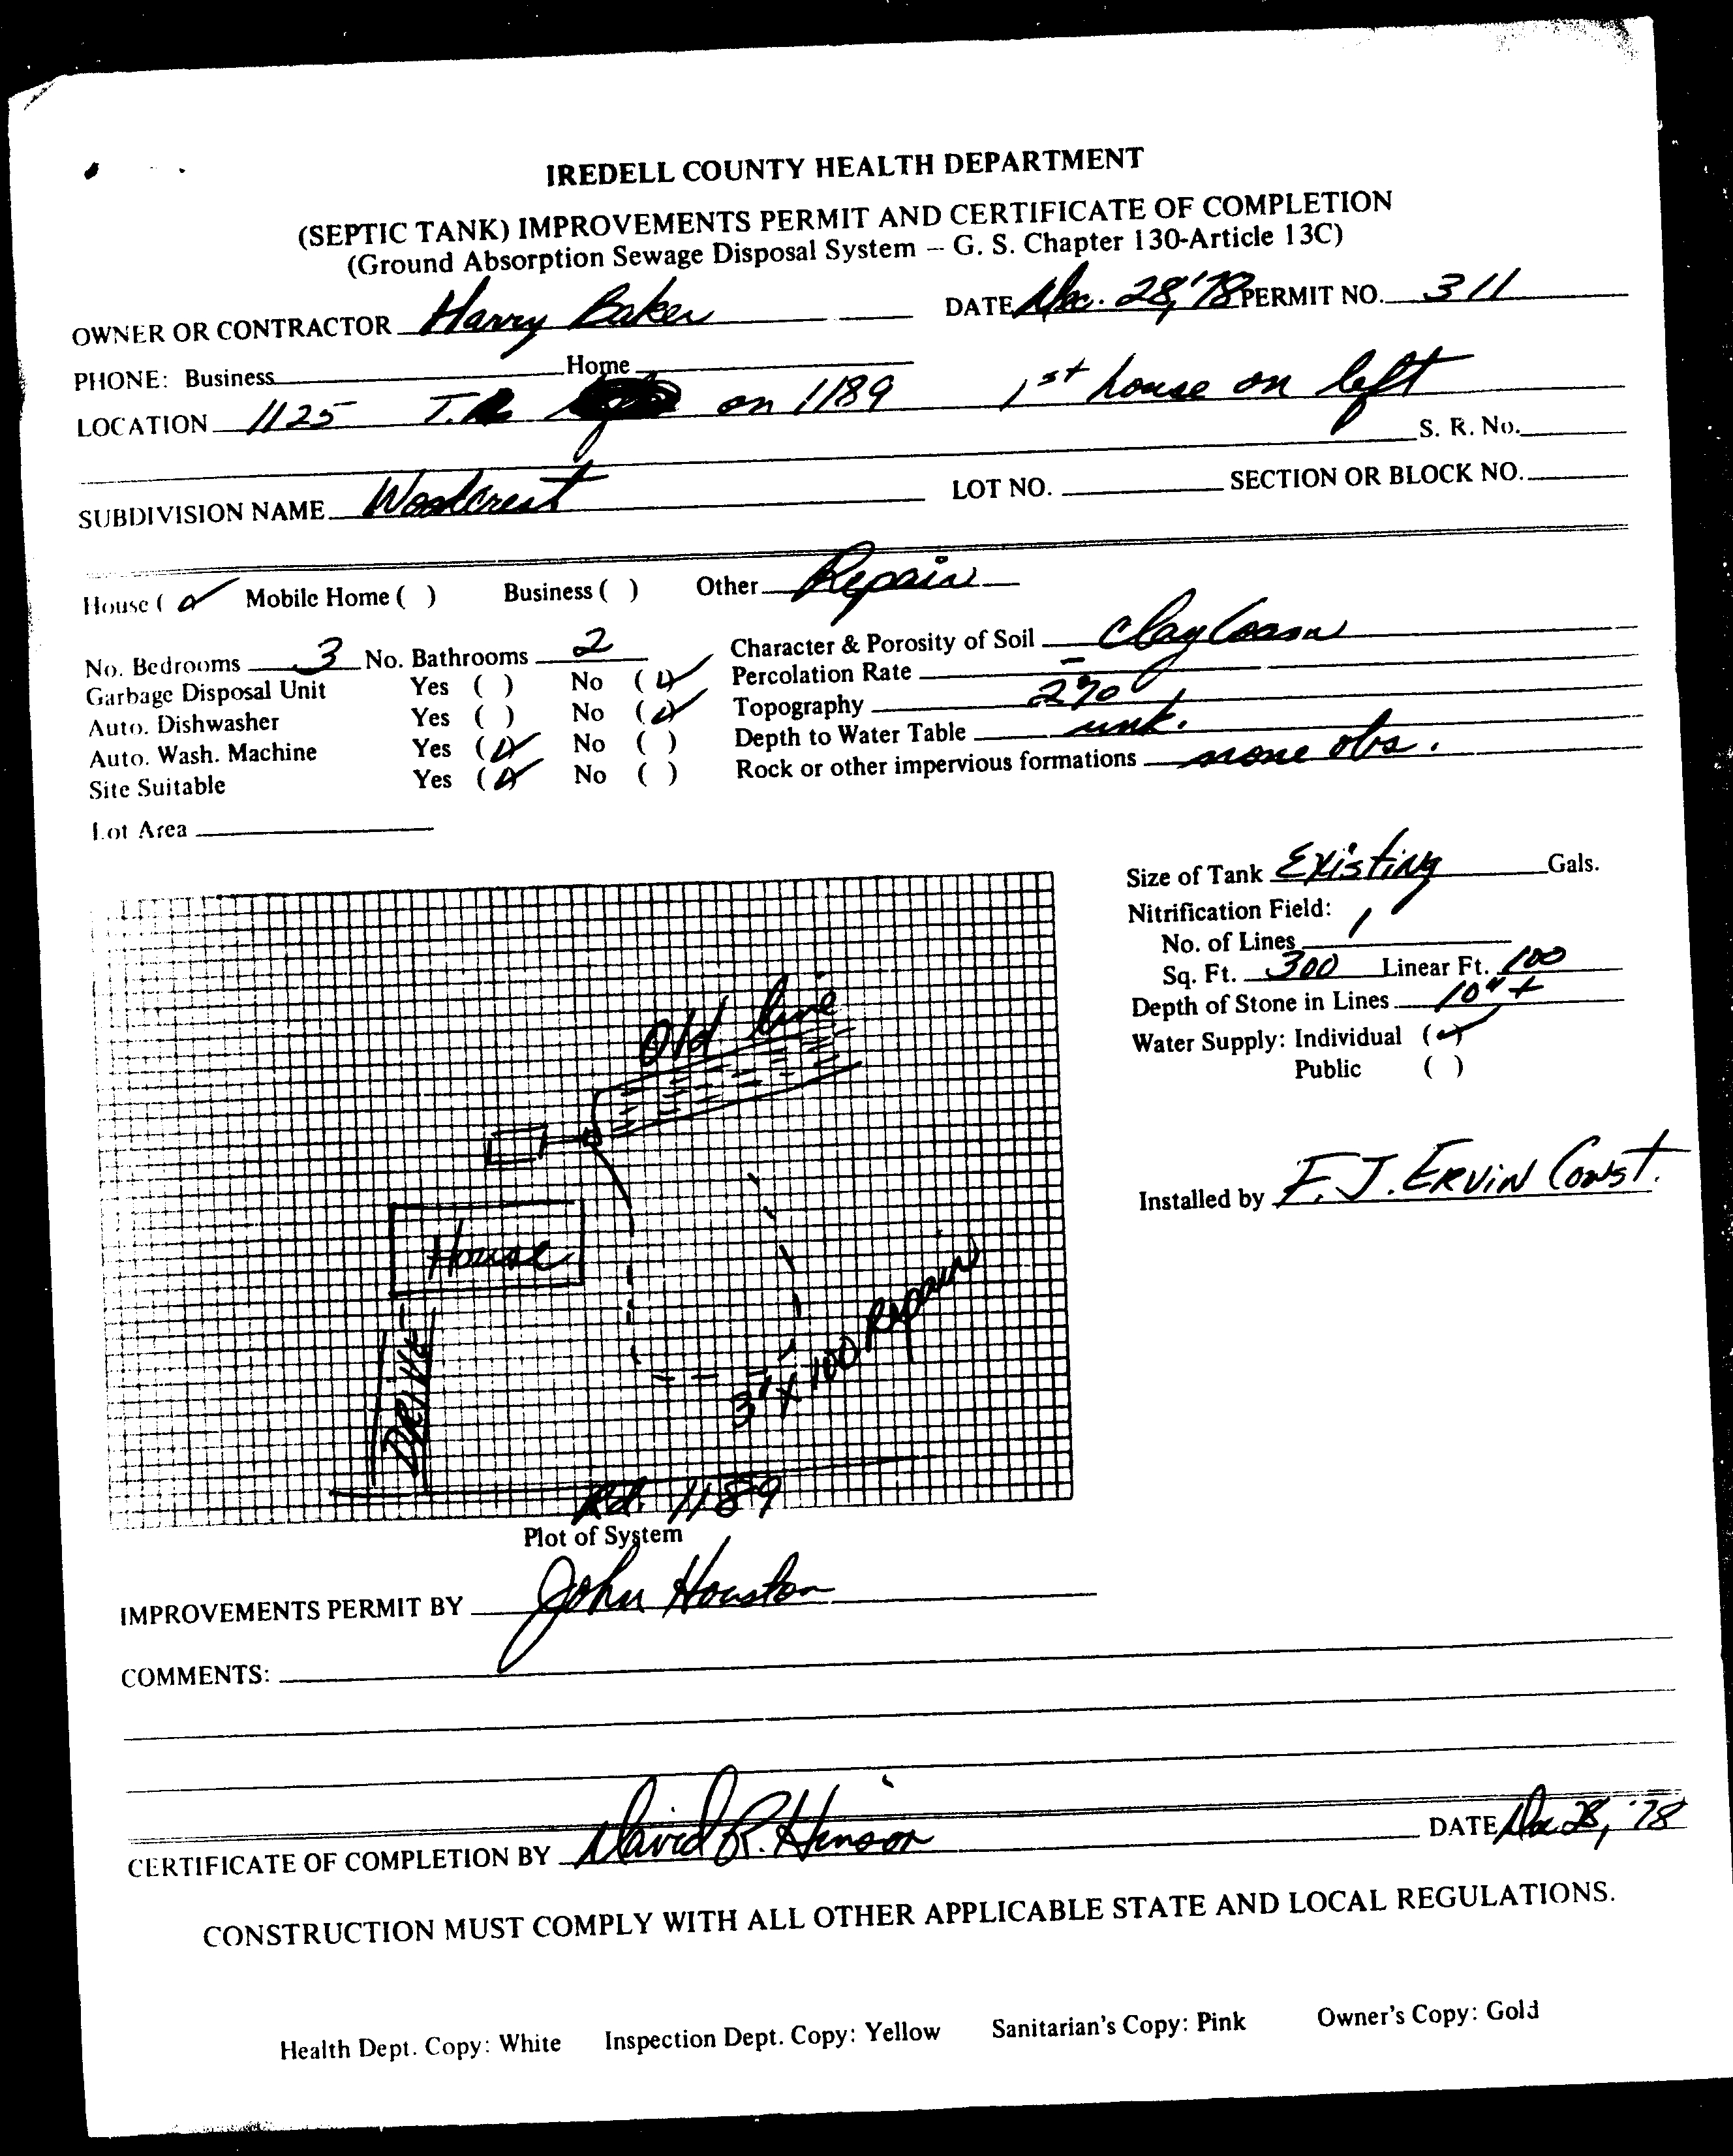 IREDELL COUNTY HEALTH DEPARTMENT
(SEPTIC TANK) IMPROVEMENTS PERMIT AND CERTIFICATE OF COMPLETION
(Ground Absorption Sewage Disposal System – G. S. Chapter 130-Article 13C)
OWNER OR CONTRACTOR Harry Baker DATE Dec. 28, '78 PERMIT NO. 311
PHONE: Business Home
LOCATION 1125 T.R. on 1189 1st house on left
S. R. No.
SUBDIVISION NAME Woodcrest LOT NO. SECTION OR BLOCK NO.
House (✓) Mobile Home ( ) Business ( ) Other Repair
No. Bedrooms 3 No. Bathrooms 2 Character & Porosity of Soil Clay Loam
Garbage Disposal Unit Yes ( ) No (✓) Percolation Rate –
Auto. Dishwasher Yes ( ) No (✓) Topography 2%
Auto. Wash. Machine Yes (✓) No ( ) Depth to Water Table unk.
Site Suitable Yes (✓) No ( ) Rock or other impervious formations none obs.
Lot Area
Size of Tank Existing Gals.
Nitrification Field:
No. of Lines 1
Sq. Ft. 300 Linear Ft. 100
Depth of Stone in Lines 10" +
Water Supply: Individual (✓)
Public ( )
Installed by F. J. ERVIN Const.
Old line
House
3' x 100 Repair
DRIVE
Rd. 1189
Plot of System
IMPROVEMENTS PERMIT BY John Houston
COMMENTS:
CERTIFICATE OF COMPLETION BY David R. Hinson DATE Dec 28, '78
CONSTRUCTION MUST COMPLY WITH ALL OTHER APPLICABLE STATE AND LOCAL REGULATIONS.
Health Dept. Copy: White Inspection Dept. Copy: Yellow Sanitarian's Copy: Pink Owner's Copy: Gold